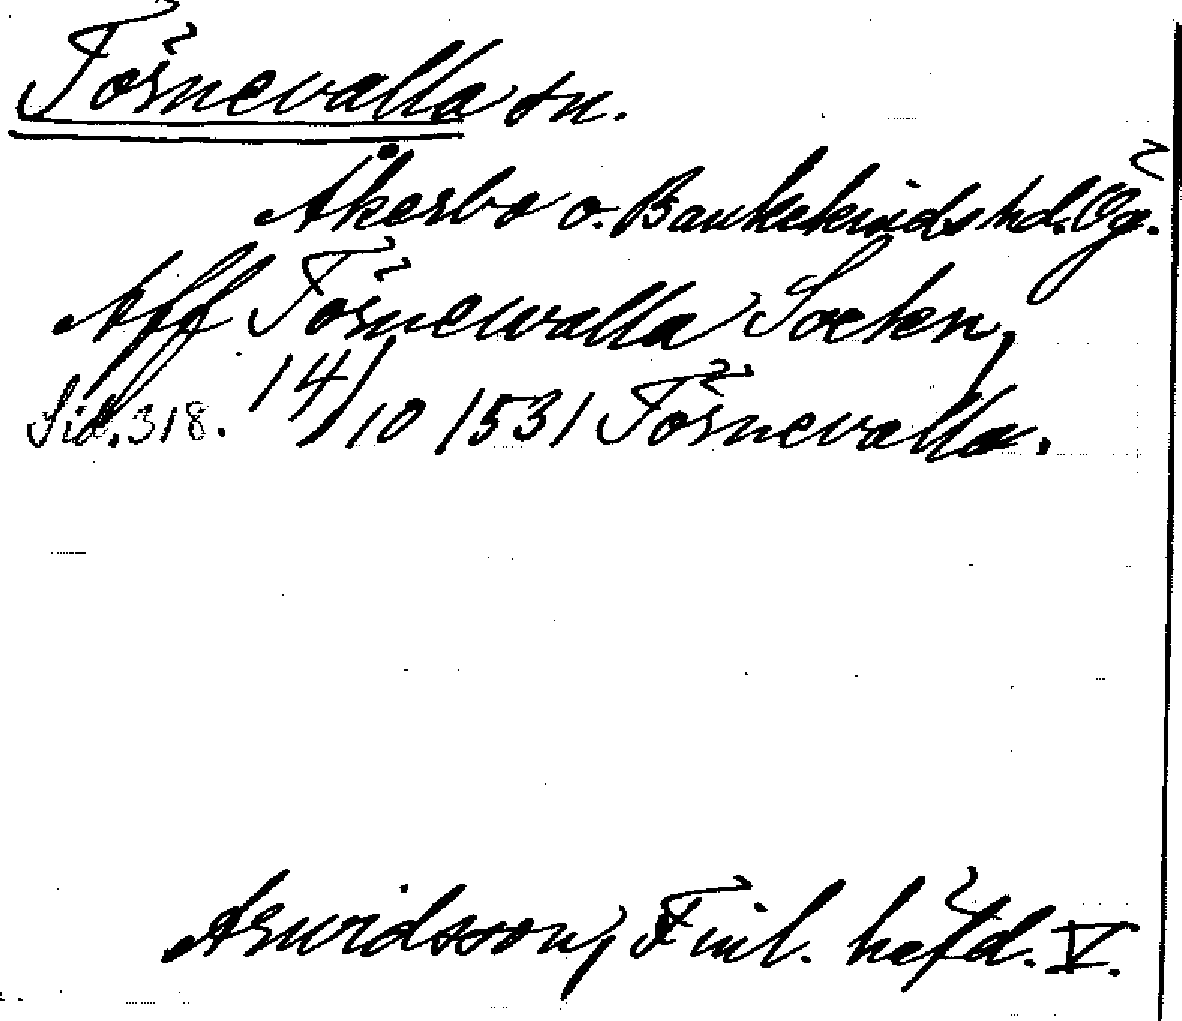 Törnevalla sn.
Åkerbo o. Bankekinds hd. Ög.
Aff Törnewalla Socken,
Sid. 318. 14/10 1531 Törnevalla.
Arwidsson, Finl. häfd. V.